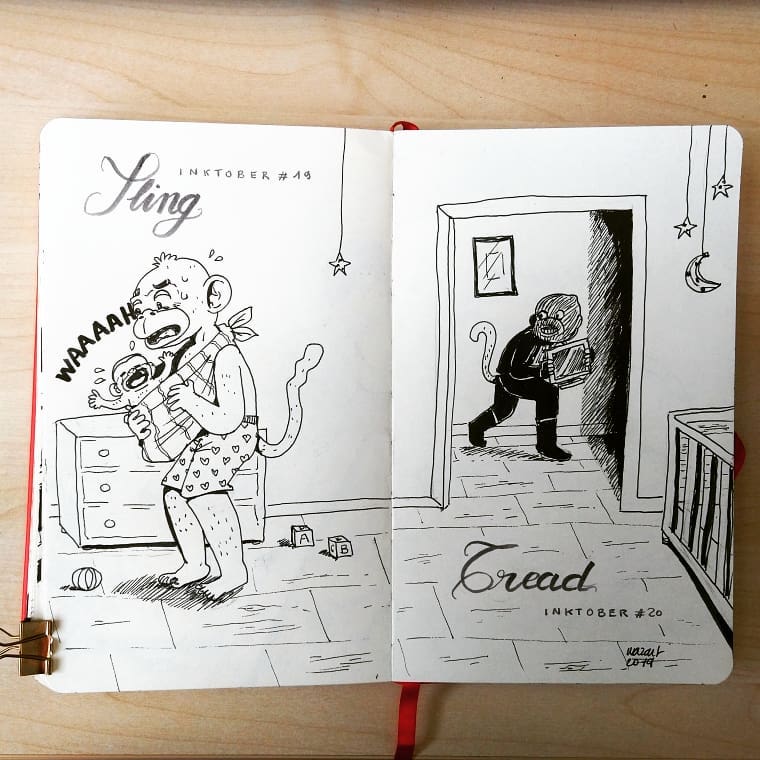 INKTOBER #19
Sling
WAAAAH
A
B
Tread
INKTOBER #20
2019